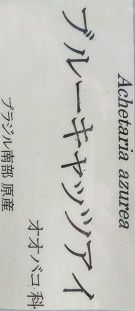 Achetaria azurea
ブルーキャッツアイ
オオバコ科
ブラジル南部 原産